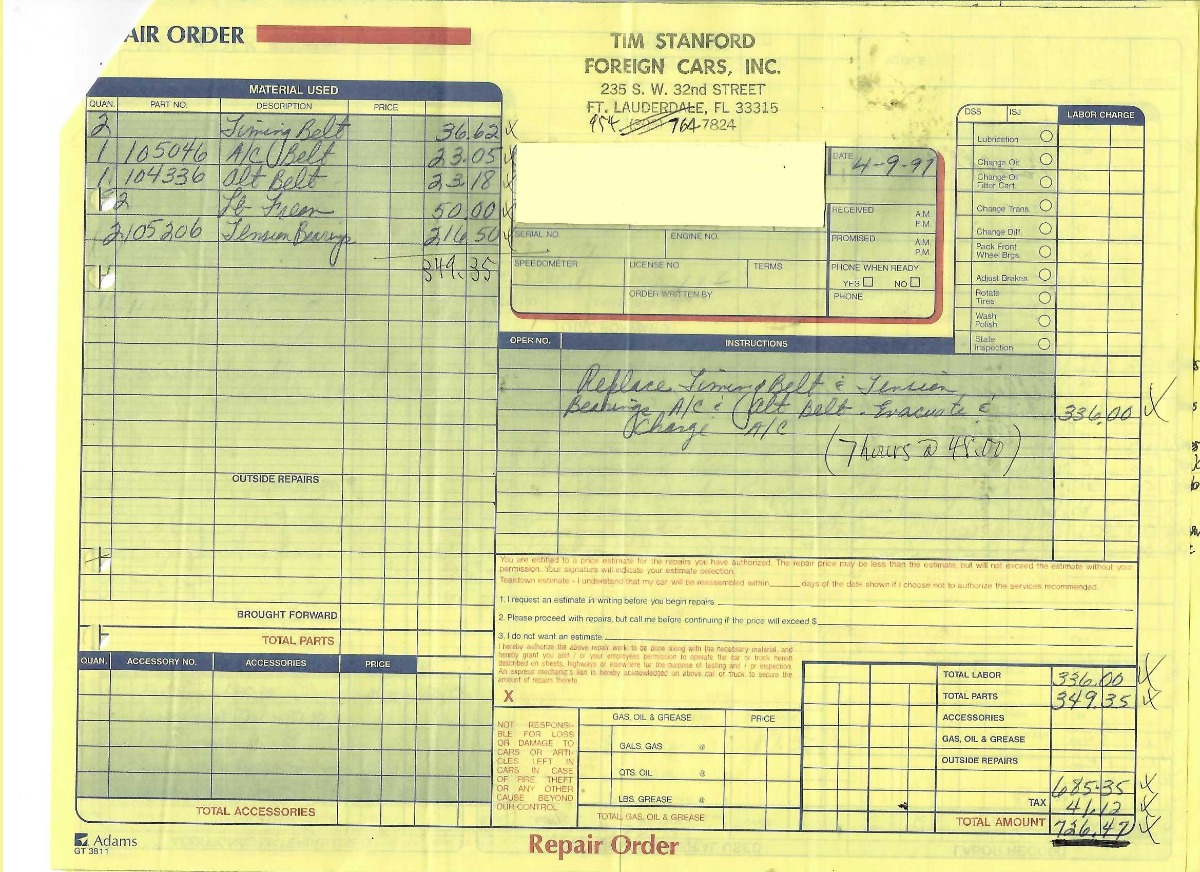 AIR ORDER
TIM STANFORD
FOREIGN CARS, INC.
235 S. W. 32nd STREET
FT. LAUDERDALE, FL 33315
954 764-7824
MATERIAL USED
QUAN. PART NO. DESCRIPTION PRICE
2 Timing Belt 36.62
1 105046 A/C Belt 23.05
1 104336 Alt Belt 23.18
2 Lb Freon 50.00
2 105206 Tension Bearings 216.50
349.35
OUTSIDE REPAIRS
BROUGHT FORWARD
TOTAL PARTS
QUAN. ACCESSORY NO. ACCESSORIES PRICE
TOTAL ACCESSORIES
DATE 4-9-97
RECEIVED A.M. P.M.
PROMISED A.M. P.M.
PHONE WHEN READY
YES NO
PHONE
SERIAL NO. ENGINE NO.
SPEEDOMETER LICENSE NO. TERMS
ORDER WRITTEN BY
DSS ISJ LABOR CHARGE
Lubrication
Change Oil
Change Oil
Filter Cart.
Change Trans.
Change Diff.
Pack Front
Wheel Brgs.
Adjust Brakes
Rotate
Tires
Wash
Polish
State
Inspection
OPER. NO. INSTRUCTIONS
Replace Timing Belt & Tension
Bearings, A/C & Alt Belt - Evacuate & 336.00
Charge A/C
(7 hours @ 48.00)
You are entitled to a price estimate for the repairs you have authorized. The repair price may be less than the estimate, but will not exceed the estimate without your
permission. Your signature will indicate your estimate selection.
Teardown estimate - I understand that my car will be reassembled within ______ days of the date shown if I choose not to authorize the services recommended.
1. I request an estimate in writing before you begin repairs.
2. Please proceed with repairs, but call me before continuing if the price will exceed $
3. I do not want an estimate.
I hereby authorize the above repair work to be done along with the necessary material, and
hereby grant you and / or your employees permission to operate the car or truck herein
described on streets, highways or elsewhere for the purpose of testing and / or inspection.
An express mechanic's lien is hereby acknowledged on above car or truck to secure the
amount of repairs thereto.
X
NOT RESPONSI-
BLE FOR LOSS
OR DAMAGE TO
CARS OR ARTI-
CLES LEFT IN
CARS IN CASE
OF FIRE, THEFT
OR ANY OTHER
CAUSE BEYOND
OUR CONTROL.
GAS, OIL & GREASE PRICE
GALS. GAS @
QTS. OIL @
LBS. GREASE @
TOTAL GAS, OIL & GREASE
TOTAL LABOR 336.00
TOTAL PARTS 349.35
ACCESSORIES
GAS, OIL & GREASE
OUTSIDE REPAIRS
685.35
TAX 41.12
TOTAL AMOUNT 726.47
Adams
GT 3811
Repair Order